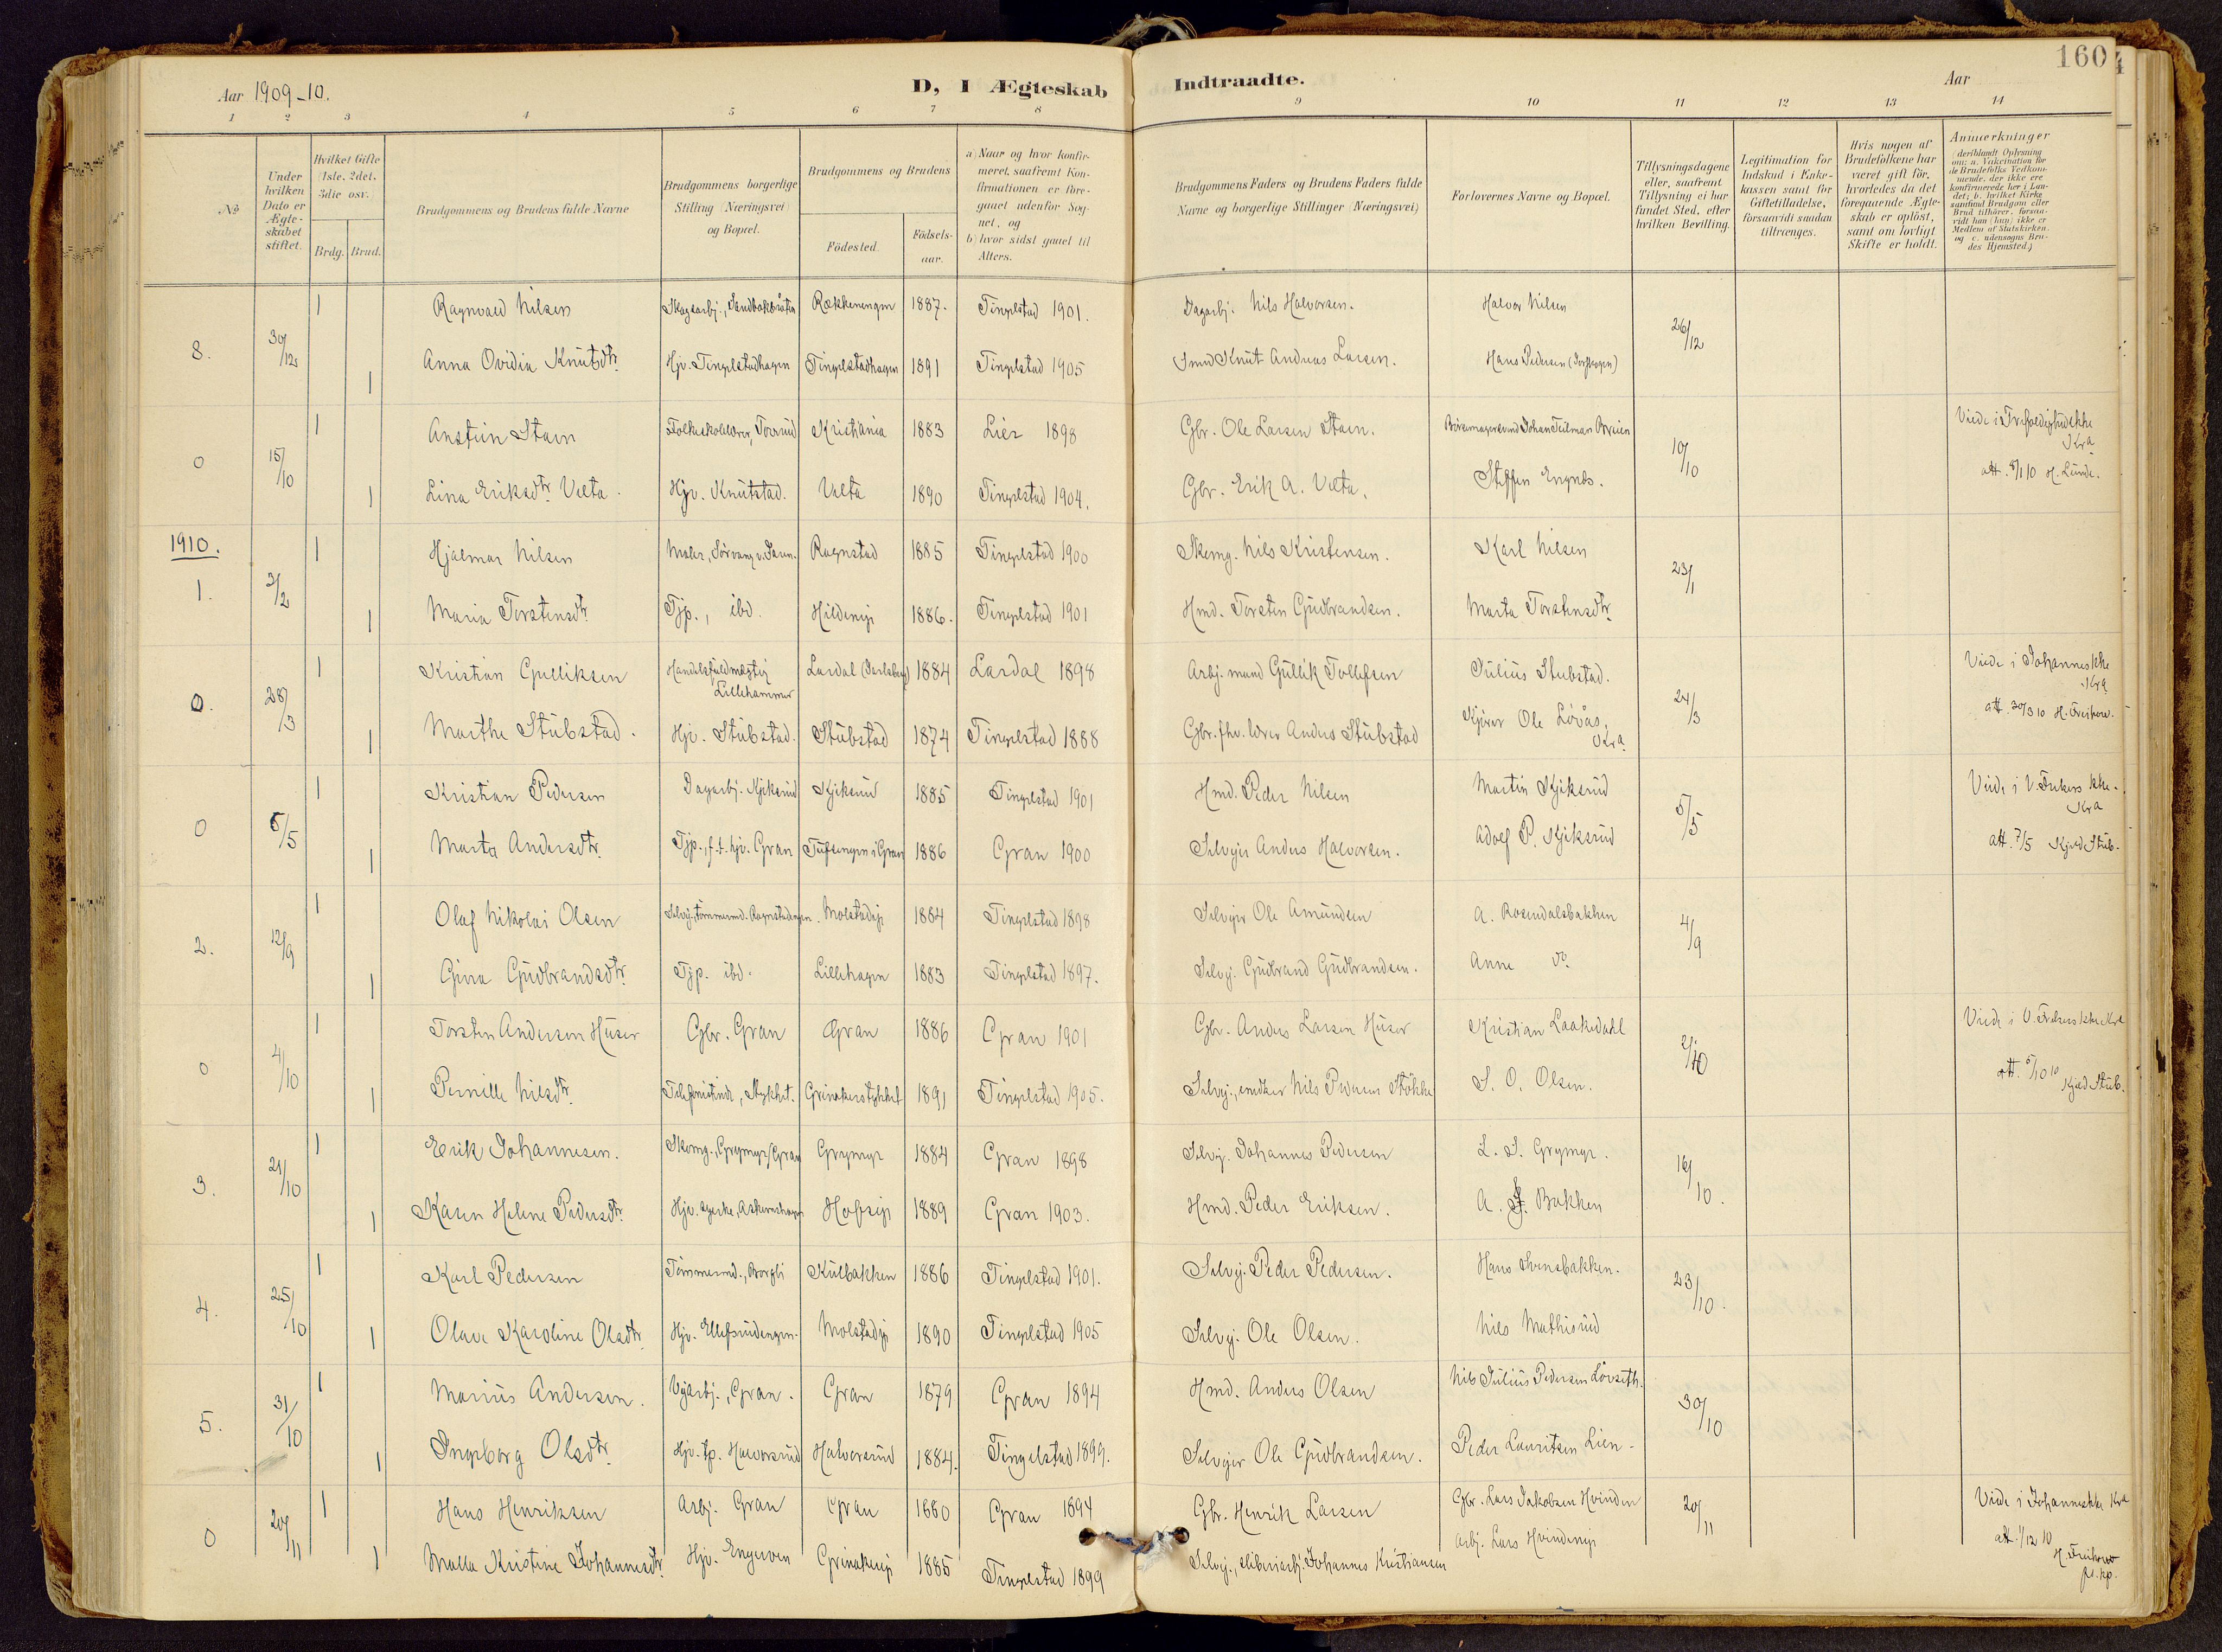 160
Aar 1909-10. D, I Ægteskab Indtraadte. Aar
1 2 3 4 5 6 7 8 9 10 11 12 13 14
No
Under hvilken Dato er Ægteskabet stiftet.
Hvilket Gifte (1ste, 2det, 3die osv.
Brdg. Brud.
Brudgommens og Brudens fulde Navne
Brudgommens borgerlige Stilling (Næringsvei) og Bopæl.
Brudgommens og Brudens
Födested. Födsels-aar.
a) Naar og hvor konfirmeret, saafremt Konfirmationen er foregaaet udenfor Sognet, og
b) hvor sidst gaaet til Alters.
Brudgommens Faders og Brudens Faders fulde Navne og borgerlige Stillinger (Næringsvei)
Forlovernes Navne og Bopæl.
Tillysningsdagene eller, saafremt Tillysning ei har fundet Sted, efter hvilken Bevilling.
Legitimation for Indskud i Enkekassen samt for Giftetilladelse, forsaavidt saadan tiltrænges.
Hvis nogen af Brudefolkene har været gift för, hvorledes da det foregaaende Ægteskab er oplöst, samt om lovligt Skifte er holdt.
Anmerkninger
(deriblandt Oplysning om: a. Vakcination for de Brudefolks Vedkommende, der ikke ere konfirmerede her i Landet; b. hvilket Kirkesamfund Brudgom eller Brud tilhörer, forsaavidt han (hun) ikke er Medlem af Statskirken, og c. udensogns Brudes Hjemsted.)
8. 30/12 1 Ragnvald Nilsen Skogsarbj., Sandbakbraaten Rækkenengen 1887. Tingelstad 1901. Dagarbj. Nils Halvorsen. Halvor Nilsen 26/12
1 Anna Ovidia Knutsdtr. Hjv. Tingelstadhagen Tingelstadhagen 1891 Tingelstad 1905 Smed Knut Andreas Larsen. Hans Pedersen
0 15/10 1 Anstein Staen Folkeskolelærer, Kristiania 1883 Lier 1898 Gbr. Ole Larsen Staen. 10/10 Viede i Trefoldighedskke Kra
1 Lina Eriksdtr. Velta. Hjv. Knutstad. Velta 1890 Tingelstad 1904. Gbr. Erik A. Velta. Steffen Engnes. att. 8/1 10 H. Lunde.
1910.
1. 3/2 1 Hjalmar Nilsen Maler, Ragnstad 1885 Tingelstad 1900 Skomg. Nils Kristensen. Karl Nilsen 23/1
1 Maria Torstensdtr. Tjp., ibd. Hildeneje 1886. Tingelstad 1901 Hmd. Torsten Gudbrandsen. Marta Torstensdtr.
0. 28/3 1 Kristian Gulliksen Handelsfuldmægtig Lillehammer Lardal (Jarlsberg) 1884 Lardal 1898 Arbj.mand Gullik Tollefsen Julius Stubstad. 24/3 Viede i Johanneskke Kra
1 Marthe Stubstad. Hjv. Stubstad. Stubstad 1874 Tingelstad 1888 Gbr. fhv. lærer Anders Stubstad Kjører Ole Løvås, Kra. att. 30/3 10
0 5/5 1 Kristian Pedersen Dagarbj. Kjiksrud Kjiksrud 1885 Tingelstad 1901 Hmd. Peder Nilsen Martin Kjiksrud 5/5 Viede i V. Frelsers kke. Kra
1 Marta Andersdtr. Tjp., f.t. hjv. Gran i Gran 1886 Gran 1900 Selvejer Anders Halvorsen. Adolf P. Kjiksrud att. 7/5 Kjeld Stub.
2. 12/9 1 Olaf Nikolai Olsen Selvej. tømmermd. Molstadeje 1884 Tingelstad 1898 Selvejer Ole Amundsen A. Rosendalsbakken 4/9
1 Gina Gudbrandsdtr. Tjp. ibd. Lillehagen 1883 Tingelstad 1897. Selvej. Gudbrand Gudbrandsen. Anne do.
0 4/10 1 Torsten Andersen Huser Gbr. Gran Gran 1886 Gran 1901 Gbr. Anders Larsen Huser Kristian Laakedahl 2/10 Viede i V. Frelsers kke Kra
1 Pernille Nilsdtr. Telefonistinde, Stykket. Grinakerstykket 1891 Tingelstad 1905. Selvej., snedker Nils Pedersen S. O. Olsen. att. 5/10 10 Kjeld Stub.
3. 21/10 1 Erik Johannesen. Skomg., Grymyr, Gran Grymyr 1884 Gran 1898 Selvej. Johannes Pedersen L. J. Grymyr. 16/10.
1 Karen Helene Pedersdtr. Hjv. Hofseje 1889 Gran 1903. Hmd. Peder Eriksen. A. Bakken
4. 25/10 1 Karl Pedersen Tømmermd., Borgli Kulbakken 1886 Tingelstad 1901. Selvej. Peder Pedersen. Hans Svensbakken. 23/10.
1 Olava Karoline Olsdtr. Hjv. Ellefsrudengen. Molstadeje 1890 Tingelstad 1905 Selvej. Ole Olsen. Nils Mathisrud
5. 31/10 1 Marius Andersen. Vejarbj., Gran. Gran 1879 Gran 1894 Hmd. Anders Olsen Nils Julius Pedersen Løvseth. 30/10
1 Ingeborg Olsdtr. Hjv. tp. Halvorsrud Halvorsrud 1884. Tingelstad 1899. Selvejer Ole Gudbrandsen. Peder Lauritsen Lien.
0 20/11 1 Hans Henriksen Arbj. Gran Gran 1880 Gran 1894 Gbr. Henrik Larsen Gbr. Lars Jakobsen Hvinden 20/11 Viede i Johanneskke Kra
1 Malla Kristine Johannesdtr. Hjv. Engerven Grinakereje 1885 Tingelstad 1899 Selvej., sliberiarbj. Johannes Kristiansen Arbj. Lars Hvindeneje att. 1/12 10